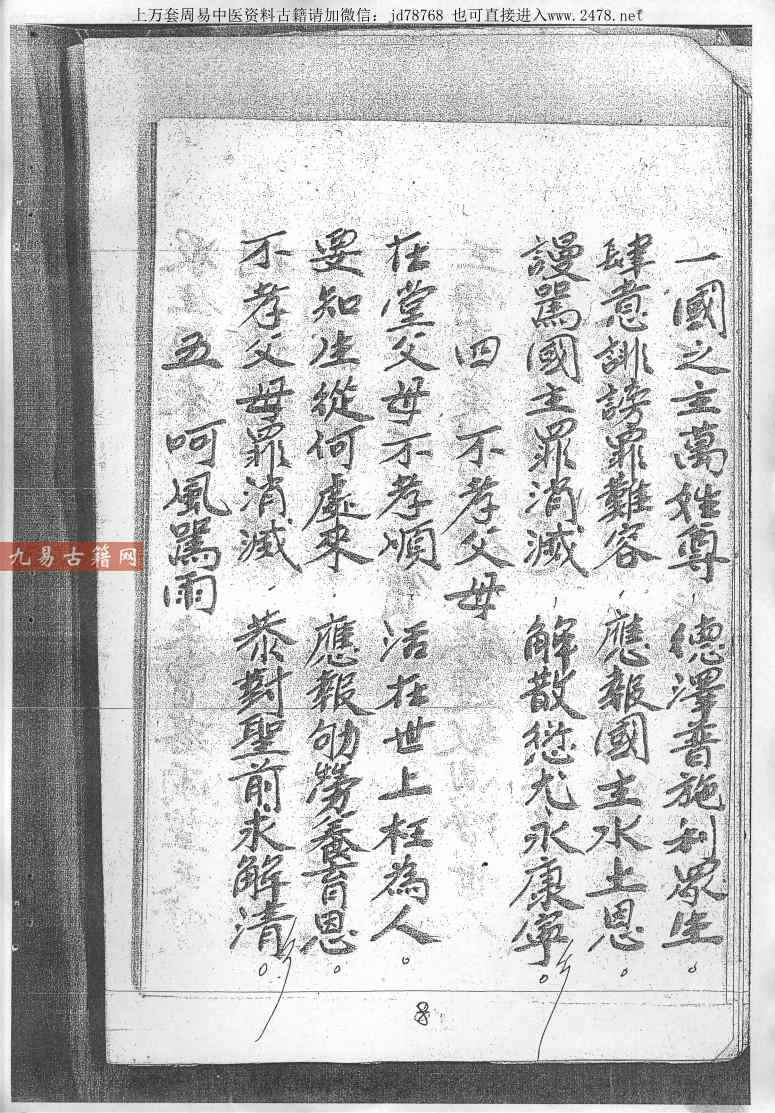 上万套周易中医资料古籍请加微信：jd78768 也可直接进入www.2478.net
一國之主萬姓尊．德澤普施利眾生。
肆意誹謗罪難容．應報國主水土恩。
謾罵國主罪消滅．解散愆尤永康寧。
四 不孝父母
在堂父母不孝順．活在世上枉為人。
要知生從何處來．應報劬勞養育恩。
不孝父母罪消滅．恭對聖前求解清。
五 呵風罵雨
九易古籍网
8